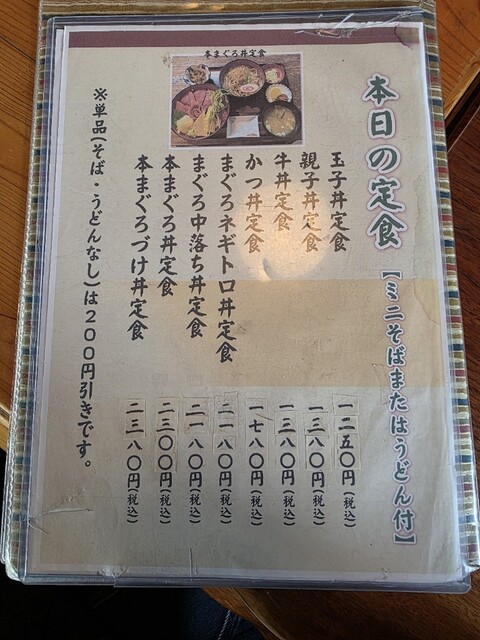 本日の定食
【ミニそばまたはうどん付】
玉子丼定食 一二五〇円(税込)
親子丼定食 一三八〇円(税込)
牛丼定食 一三八〇円(税込)
かつ丼定食 一七八〇円(税込)
まぐろネギトロ丼定食 二一八〇円(税込)
まぐろ中落ち丼定食 二一八〇円(税込)
本まぐろ丼定食 二三〇〇円(税込)
本まぐろづけ丼定食 二三八〇円(税込)
※単品(そば・うどんなし)は200円引きです。
本まぐろ丼定食